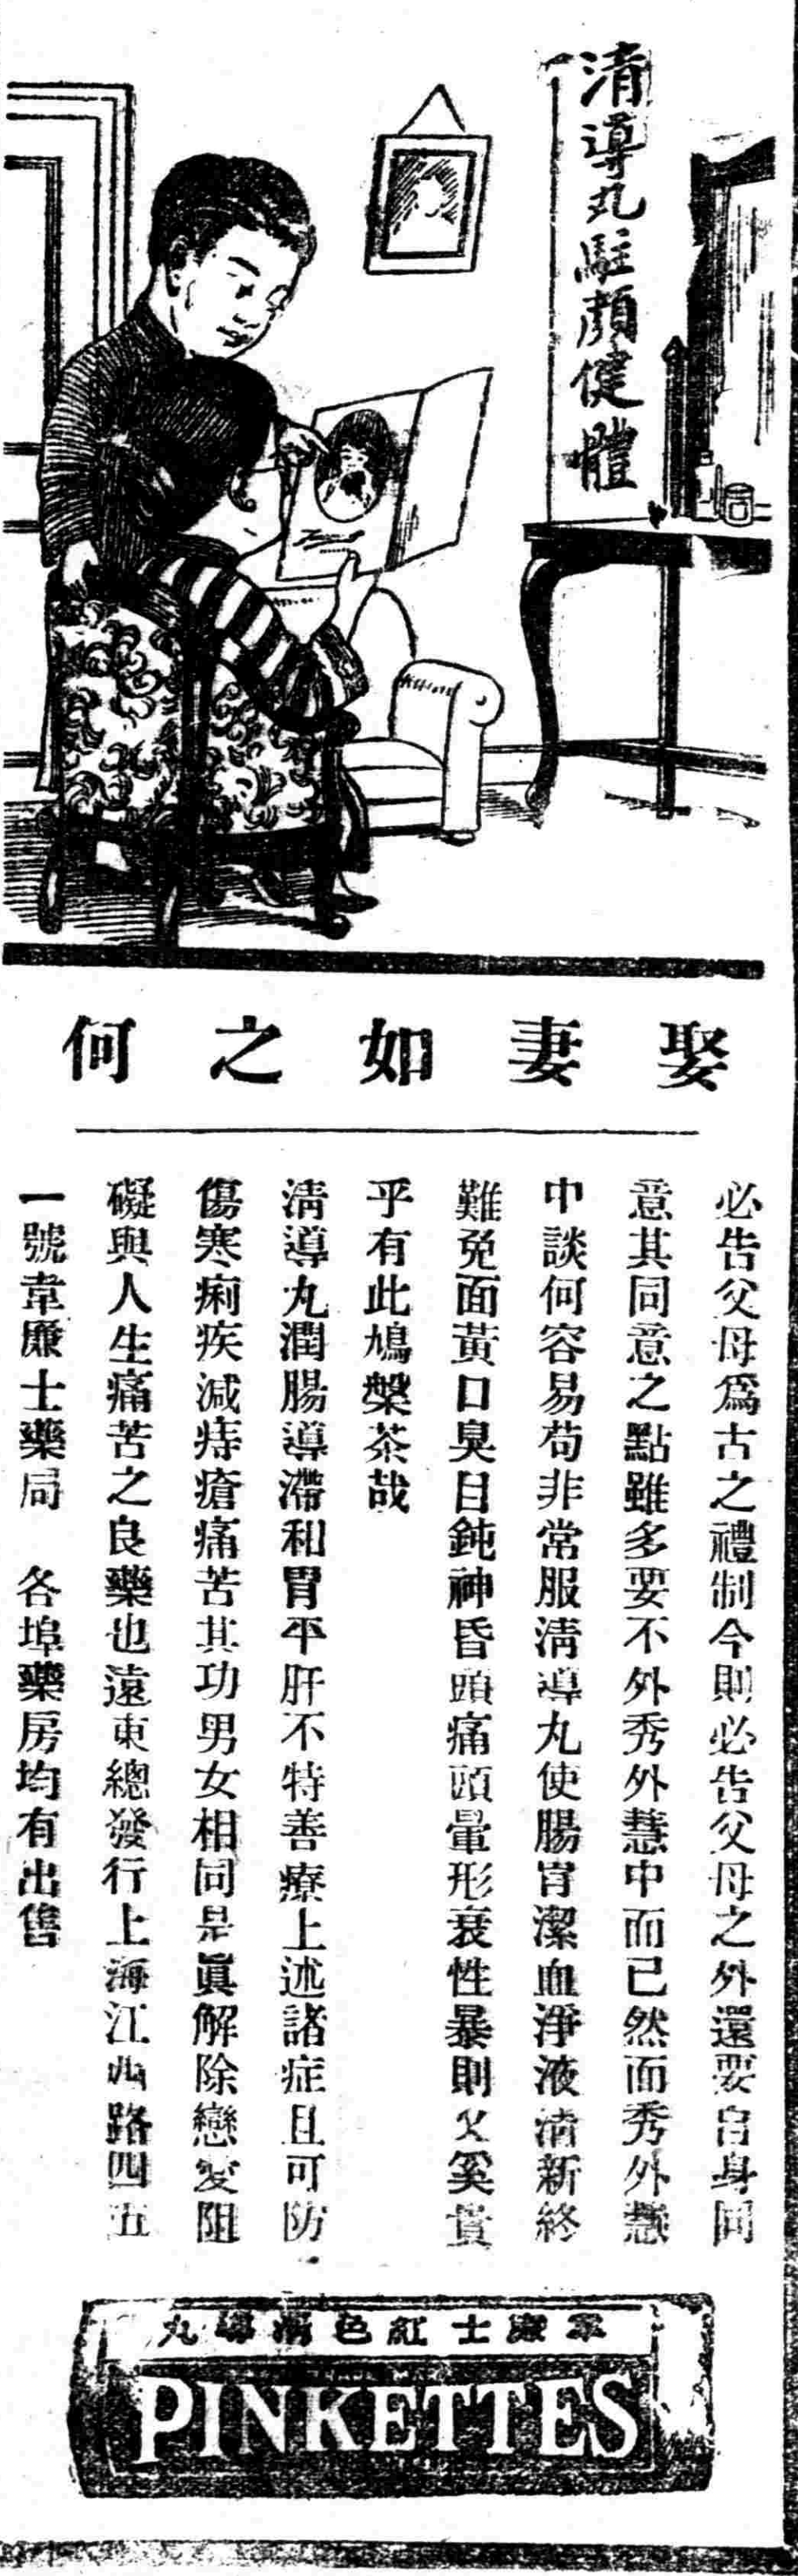 清導丸駐顏健體
娶妻如之何
必告父母爲古之禮制今則必告父母之外還要自身同
意其同意之點雖多要不外秀外慧中而已然而秀外慧
中談何容易苟非常服清導丸使腸胃潔血淨液清新終
難免面黃口臭目鈍神昏頭痛頭暈形衰性暴則又奚貴
乎有此鳩槃茶哉
清導丸潤腸導滯和胃平肝不特善療上述諸症且可防
傷寒痢疾減痔瘡痛苦其功男女相同是眞解除戀愛阻
礙與人生痛苦之良藥也遠東總發行上海江西路四五
一號韋廉士藥局　各埠藥房均有出售
韋廉士紅色清導丸
PINKETTES